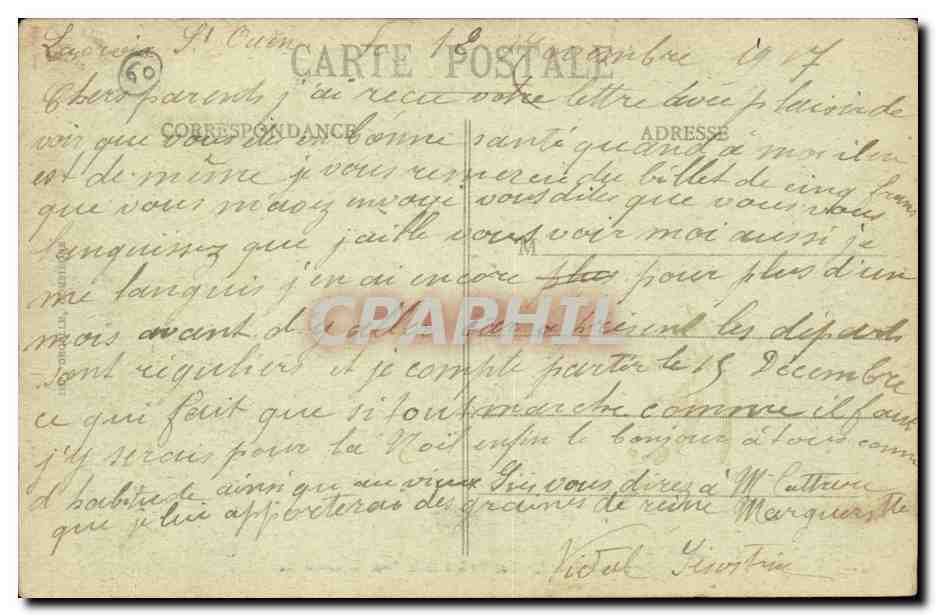 St Ouen 18 Novembre 1917
60
CARTE POSTALE
Chers parents j'ai recu votre lettre avec plaisir de
CORRESPONDANCE
ADRESSE
voir que vous etes en bonne santé quand à moi il en
est de même je vous remercie du billet de cinq francs
que vous m'avez envoyé vous dites que vous vous
languissez que j'aille vous voir moi aussi je
M
me languis j'en ai encore plus pour plus d'un
mois avant d'y aller car a présent les départs
CPAPHIL
sont réguliers et je compte partir le 15 Décembre
ce qui fait que si tout marche comme il faut
j'y serais pour la Noël enfin le bonjour à tous comme
d'habitude ainsi qu'au vieux vous direz à M
que je lui apporterai des graines de reine Marguerite
Vidal